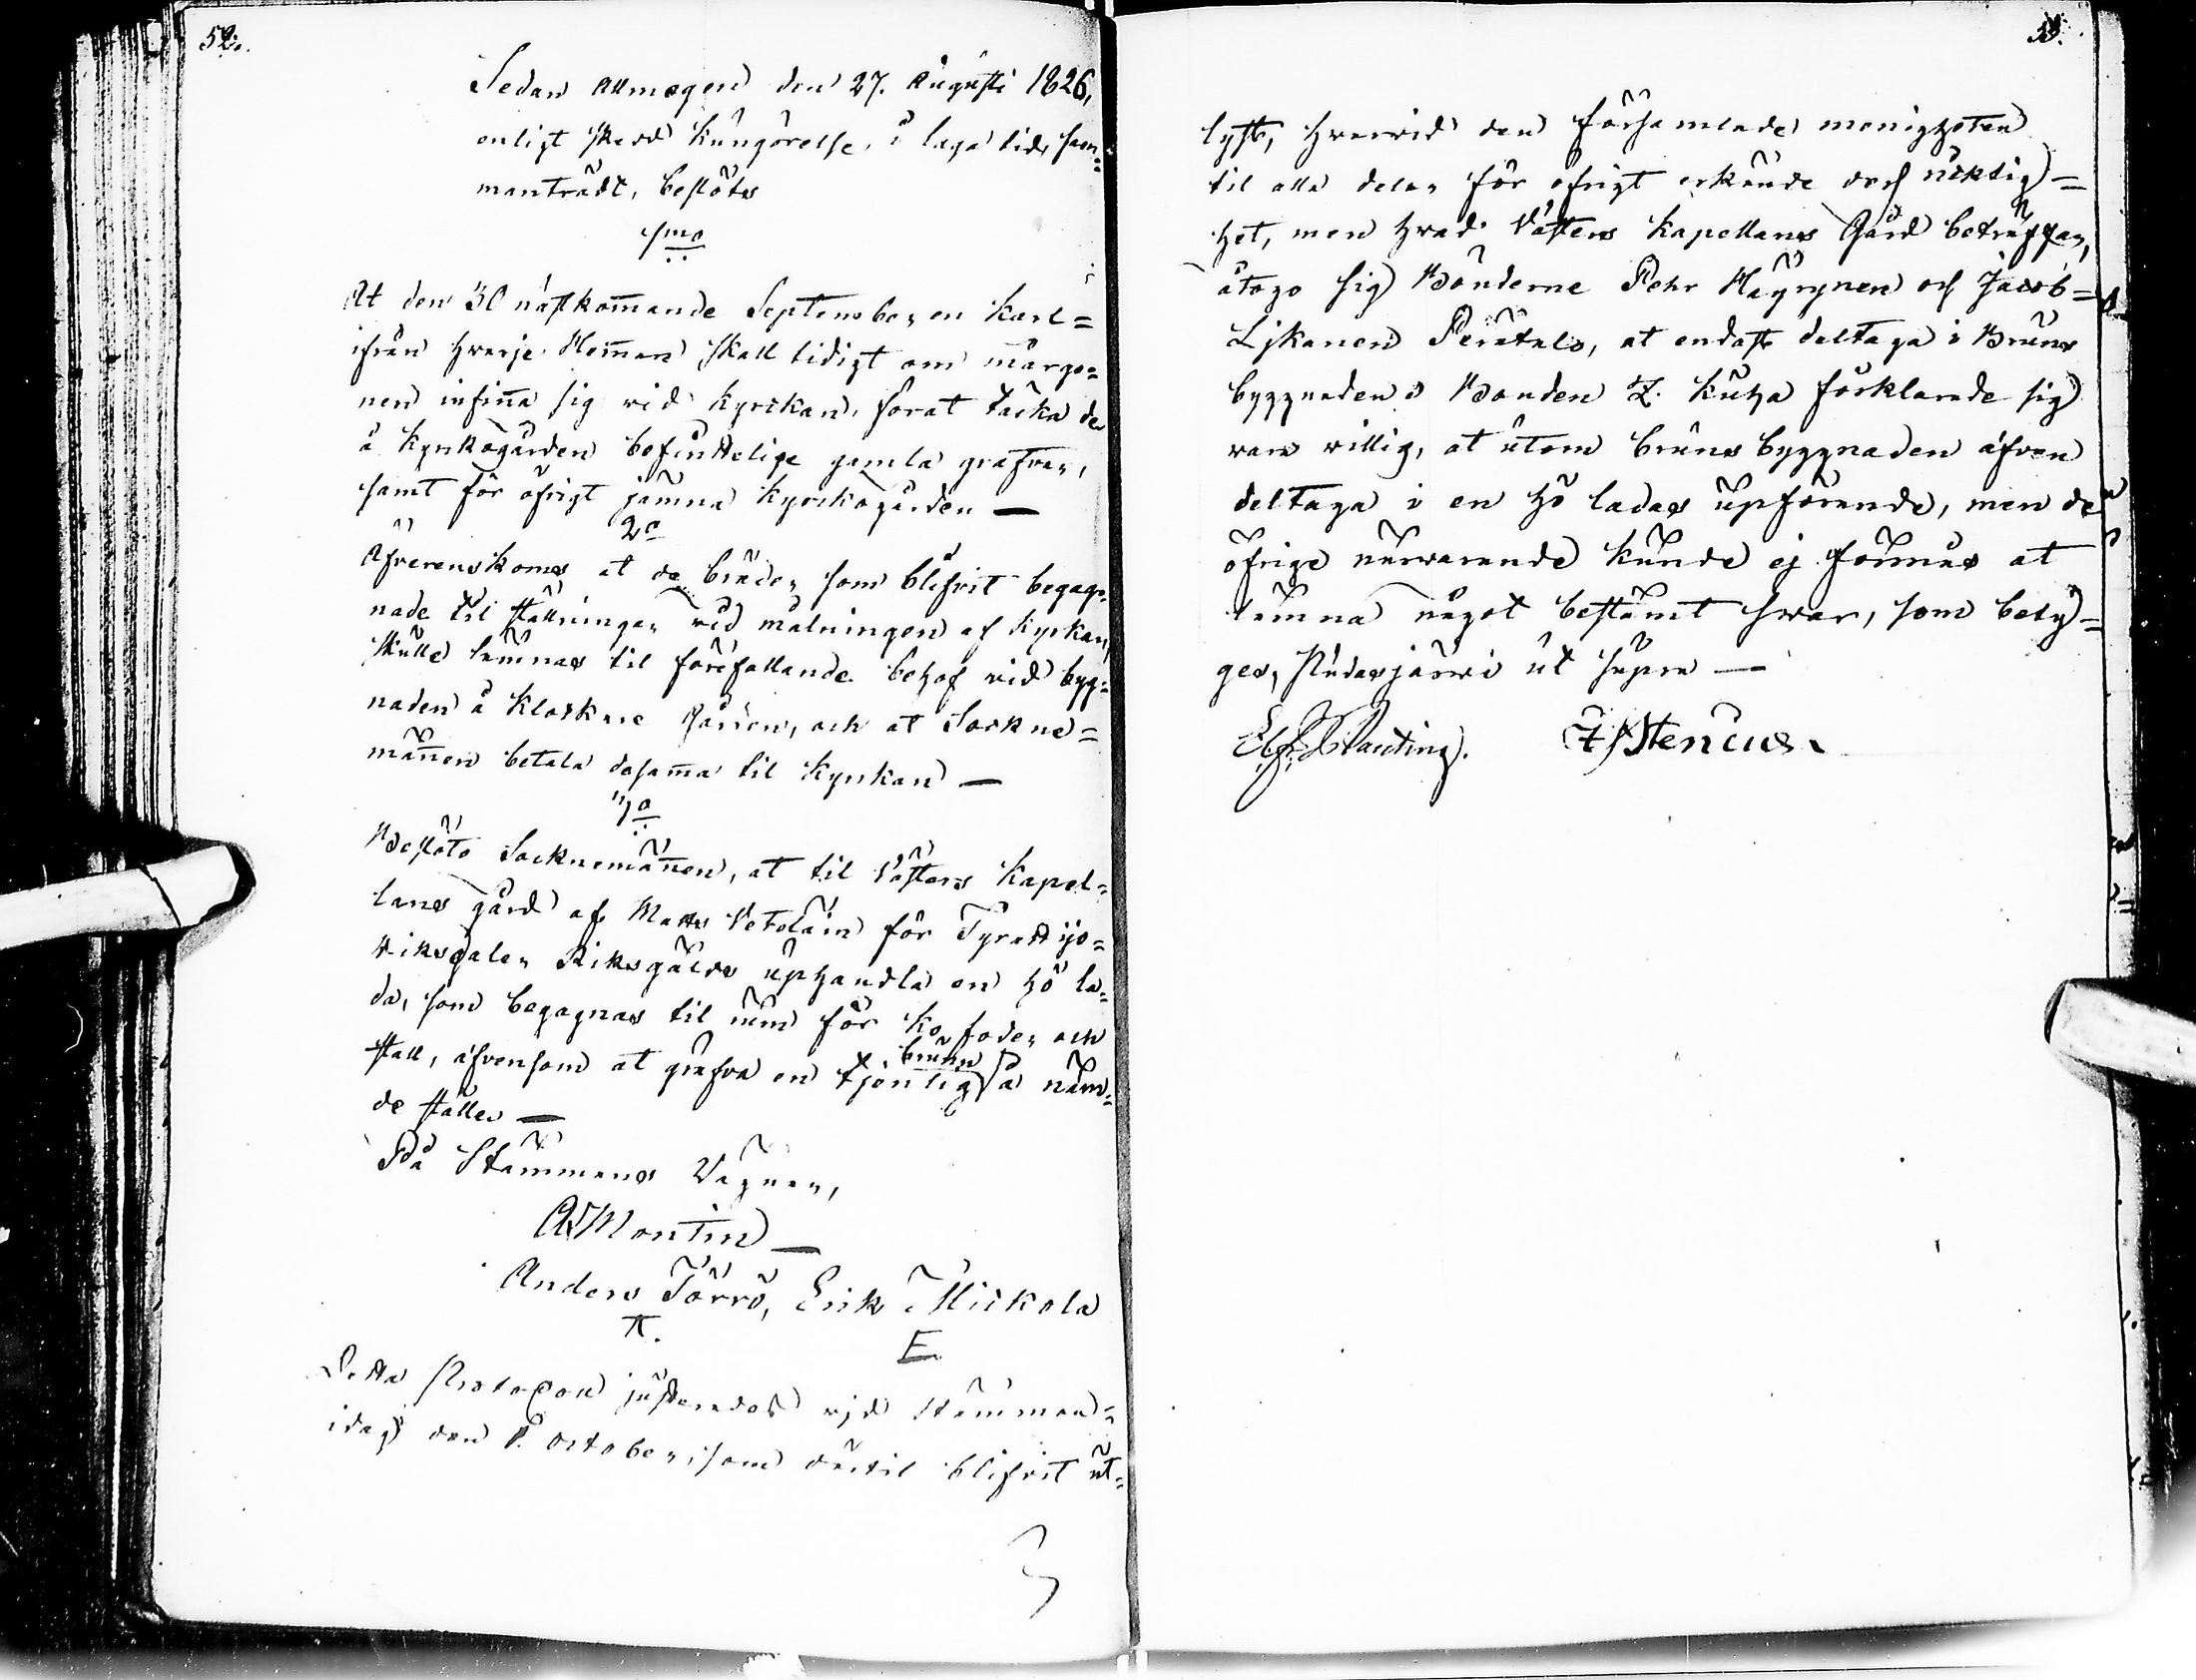 52.
Sedan Allmogen den 27. Augusti 1826,
enligt skedd kungörelse, i laga tid, sam-
manträdt, beslöts
1mo
At den 30 nästkommande September en karl
ifrån hvarje Hemman skall tidigt om mårgo-
nen infinna sig vid kyrckan, förat täcka de
å kyrkogården befinttelige gamla grafvar,
samt för öfrigt jämna kyrckogården —
2o
Öfverenskoms at de bräder som blifvit begag-
nade til ställningar vid målningen af kyrkan,
skulle lämnas til förefallande behof vid byg-
naden å Klockare gården, och at Sockne-
männen betala desamma til kyrkan —
3o
Beslöto Socknemännen, at til Våsters Kapel-
lans gård af Matts Vetelain för Tyrattijo
Riksdaler Riksgälds uphandla en hö la-
da, som begagnas til rum för ko foder och
stall, äfvensom at gräfva en tjenlig brunn å näm-
de ställe —
På Stämmans Vägnar,
A Montin —
Anders Törrö, Erik Mickola
Detta Protocoll justerades vid Stämman
idag den 8. October, som dertil blifvit ut-
53.
lyst, hvarvid den församlade menigheten
til alla delar för öfrigt erkände dess riktig-
het, men hvad Våsters Kapellans Gård beträffar,
åtogo sig Bönderne Pehr Häyrynen och Jacob
Likanen Perätalo, at endast deltaga i Bruns
byggnaden. Bonden Z. Kuha förklarade sig
vara villig, at utom bruns byggnaden äfven
deltaga i en hö ladas upförande, men de
öfrige närvarande kunde ej förmås at
lämna något bestämt svar, som bety-
ges, Pudasjärvi ut supra —